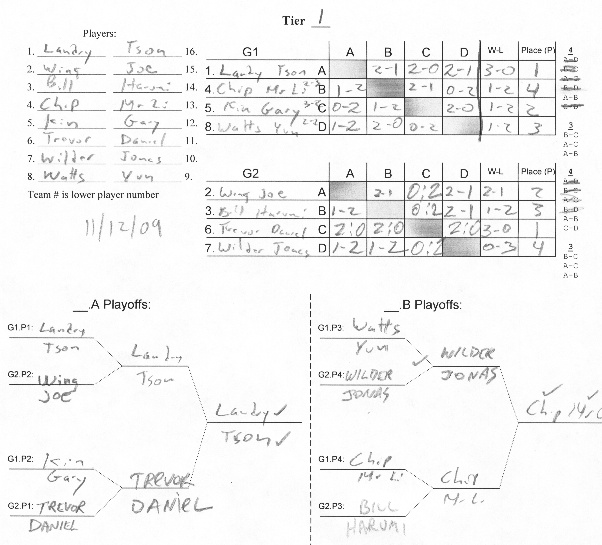 Tier 1
Players:
1. Landry Tson 16.
2. Wing Joe 15.
3. Bill Harumi 14.
4. Chip Mr Li 13.
5. Kin Gary 12.
6. Trevor Daniel 11.
7. Wilder Jonas 10.
8. Watts Yun 9.
Team # is lower player number
11/12/09
G1 A B C D W-L Place (P)
1. Landry Tson A 2-1 2-0 2-1 3-0 1
4. Chip Mr Li B 1-2 2-1 0-2 1-2 4
5. Kin Gary C 0-2 1-2 2-0 1-2 2
8. Watts Yun D 1-2 2-0 0-2 1-2 3
4
A-D
B-C
A-B
C-D
3
B-C
A-C
A-B
G2 A B C D W-L Place (P)
2. Wing Joe A 2-1 0:2 2-1 2-1 2
3. Bill Harumi B 1-2 0:2 2-1 1-2 3
6. Trevor Daniel C 2:0 2:0 2:0 3-0 1
7. Wilder Jonas D 1-2 1-2 0:2 0-3 4
4
C-D
3
B-C
A-C
A-B
__.A Playoffs:
G1.P1: Landry
Tson
G2.P2: Wing
JOE
Landry
Tson
Landry ✓
Tson ✓
G1.P2: Kin
Gary
G2.P1: TREVOR
DANIEL
TREVOR
DANIEL
__.B Playoffs:
G1.P3: Watts
Yun
G2.P4: WILDER
JONAS
WILDER
JONAS
Chip
G1.P4: Chip
Mr. Li
G2.P3: BILL
HARUMI
Chip
Mr. L.